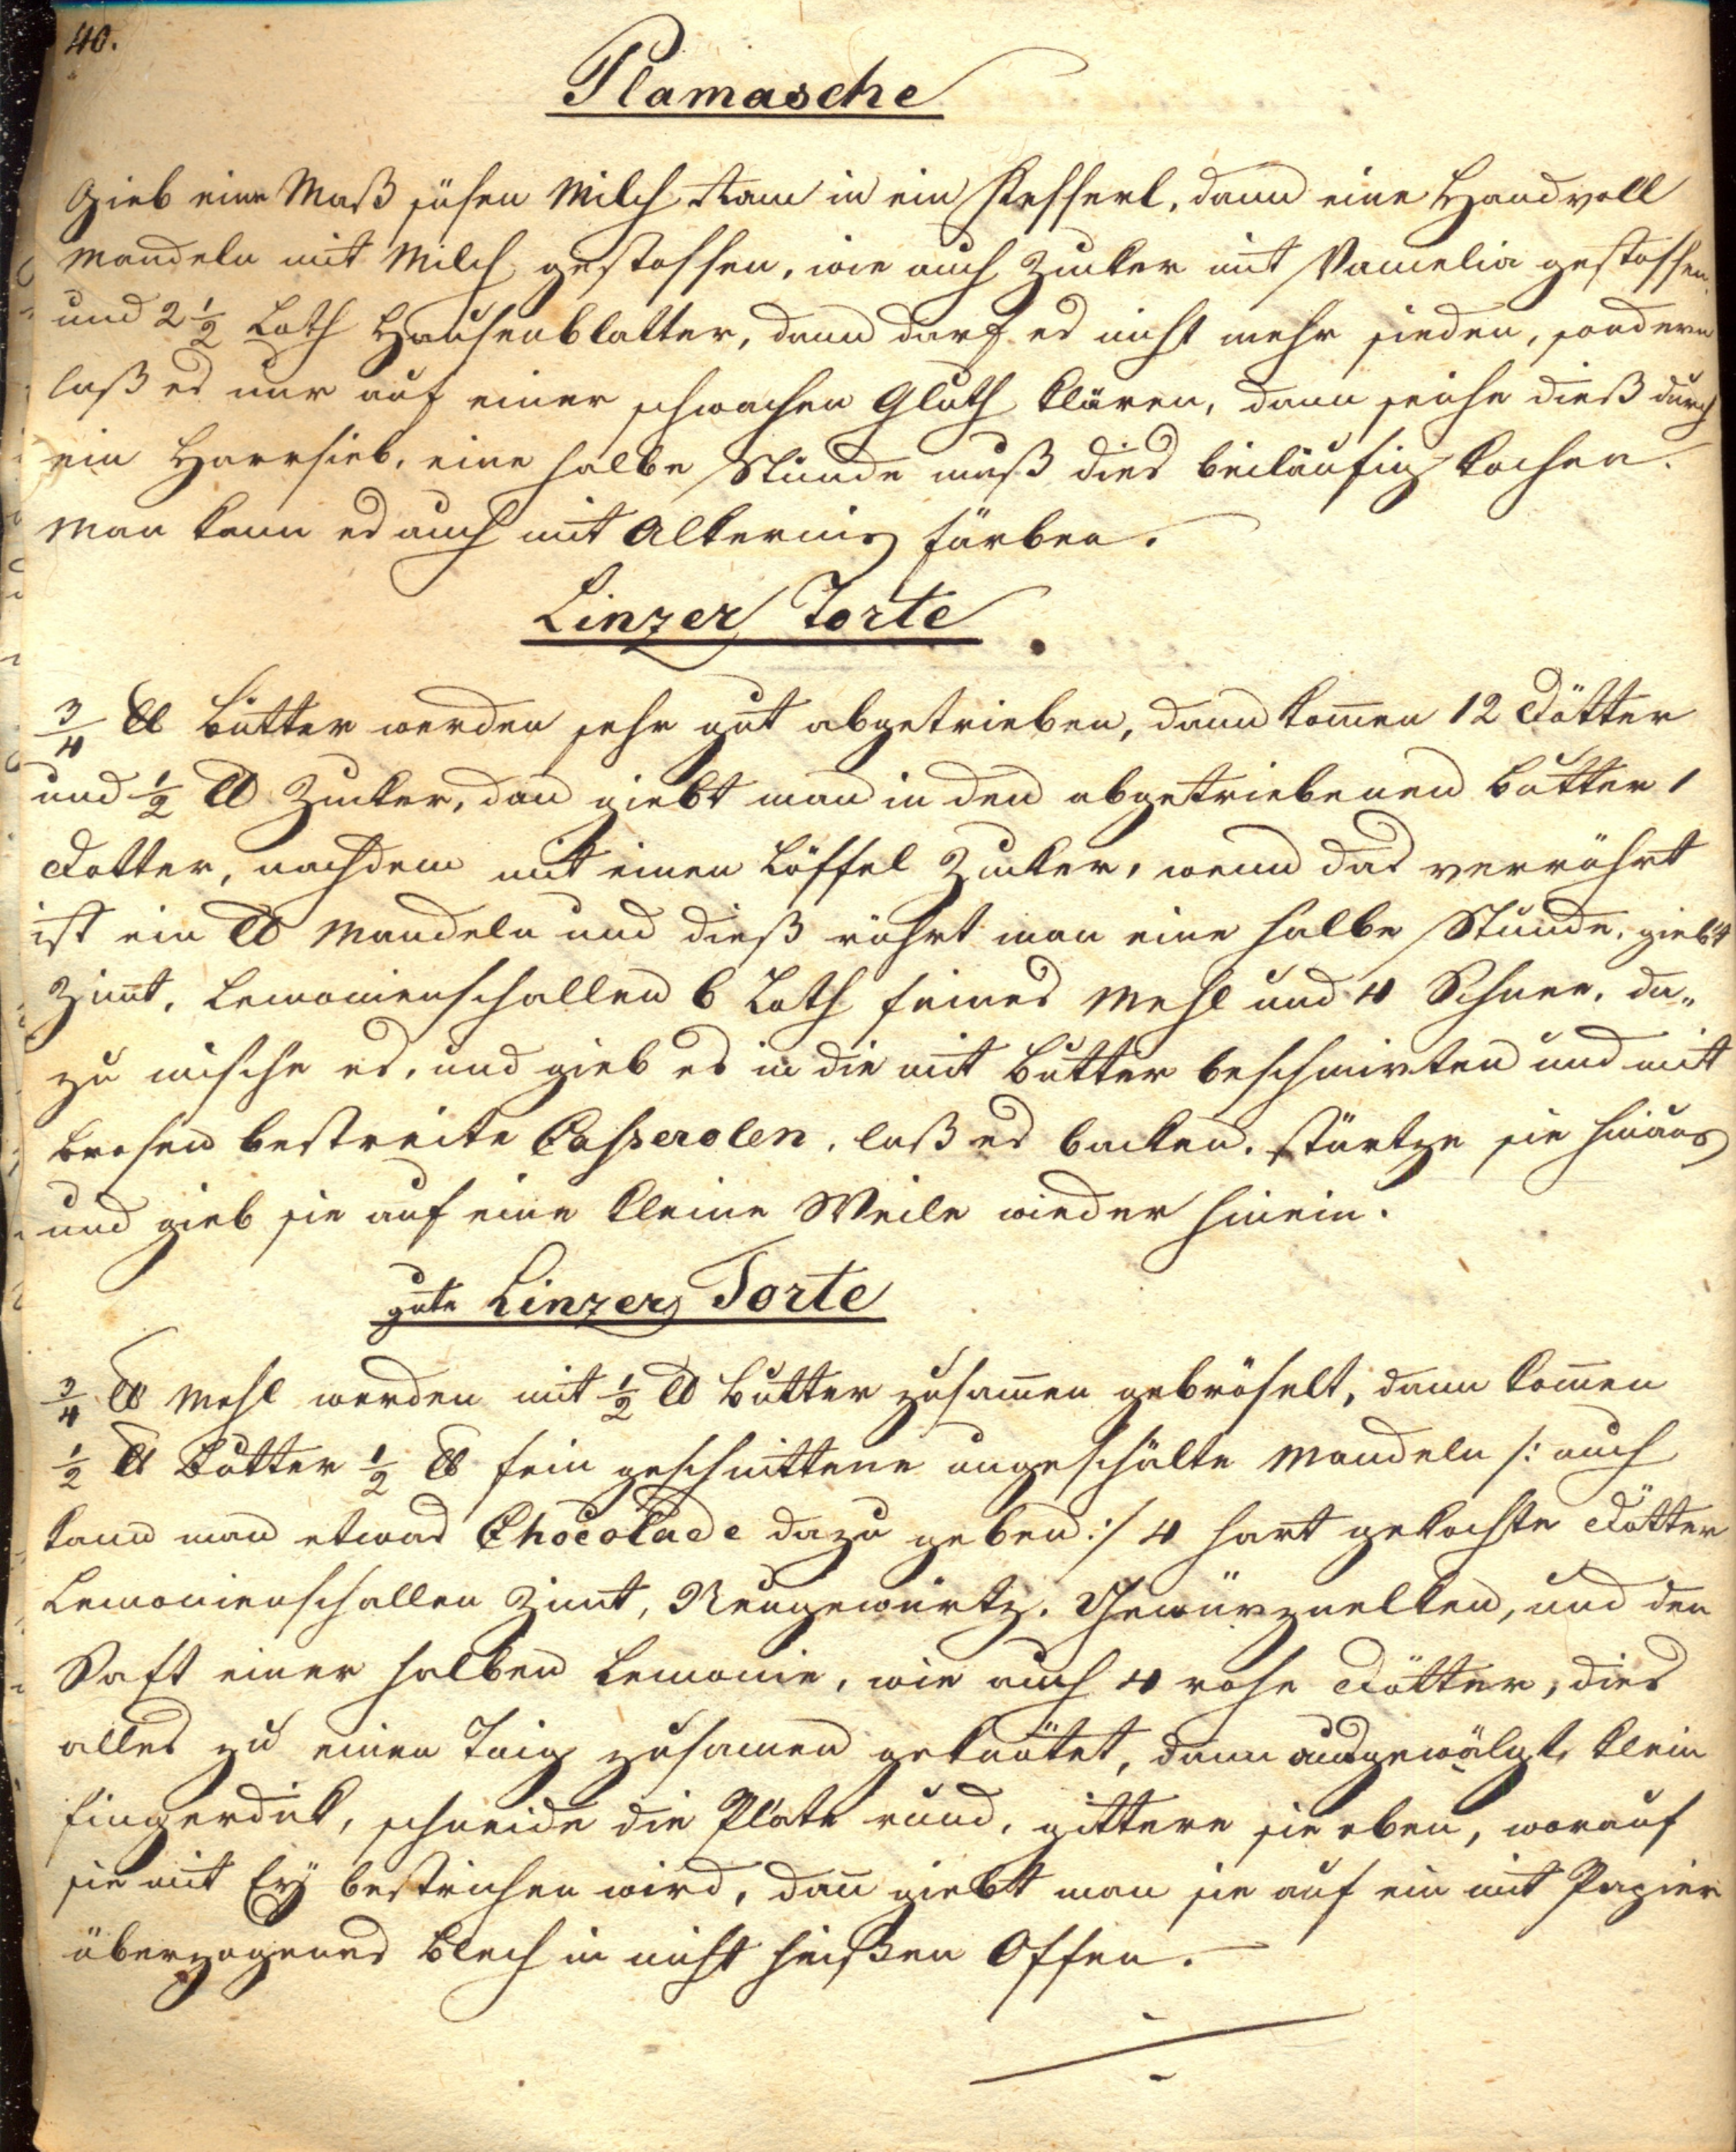 40.
Plamasche
Gieb eine Maß süßen Milch Ram in ein Kesserl, dann eine Handvoll
Mandeln mit Milch gestossen, wie auch Zucker mit Vamelia gestossen,
und 2 1/2 Loth Hausenblatter, dann darf es nicht mehr sieden, sondern
laß es nur auf einer schwachen Gluth klären, dann seihe dieß durch
ein Harrsieb, eine halbe Stunde muß dies beiläufig kochen.
Man kann es auch mit Alkermis färben.
Linzer Torte
3/4 ℔ Butter werden sehr gut abgetrieben, dann kom̄en 12 Dötter
und 1/2 ℔ Zucker, dan giebt man in den abgetriebenen Butter 1
Dotter, nachdem mit einen Löffel Zucker, wenn das verrührt
ist ein ℔ Mandeln und dieß rührt man eine halbe Stunde, giebt
Zim̄t, Lemonienschallen 6 Loth feines Mehl und 4 Schnee, da„
zu mische es, und gieb es in die mit Butter beschmirten und mit
Brosen bestreite Casserolen, laß es backen, stürtze sie hinaus
und gieb sie auf eine kleine Weile wieder hinein.
gute Linzer Torte
3/4 ℔ Mehl werden mit 1/2 ℔ Butter zusam̄en gebröselt, dann kom̄en
1/2 ℔ Butter 1/2 ℔ fein geschnittene ungeschälte Mandeln /: auch
kann man etwas Chocolade dazu geben :/ 4 hart gekochte Dötter
Lemonienschallen Zimt, Neugewürtz, Gewürznelken, und den
Saft einer halben Lemonie, wie auch 4 rohe Dötter, dies
alles zu einen Taig zusamen geknötet, dann ausgewälgt, klein
fingerdick, schneide die Platte rund, gittere sie eben, worauf
sie mit Eÿ bestrichen wird, dan̄ giebt man sie auf ein mit Papier
überzogenes Blech in nicht heißen Offen.